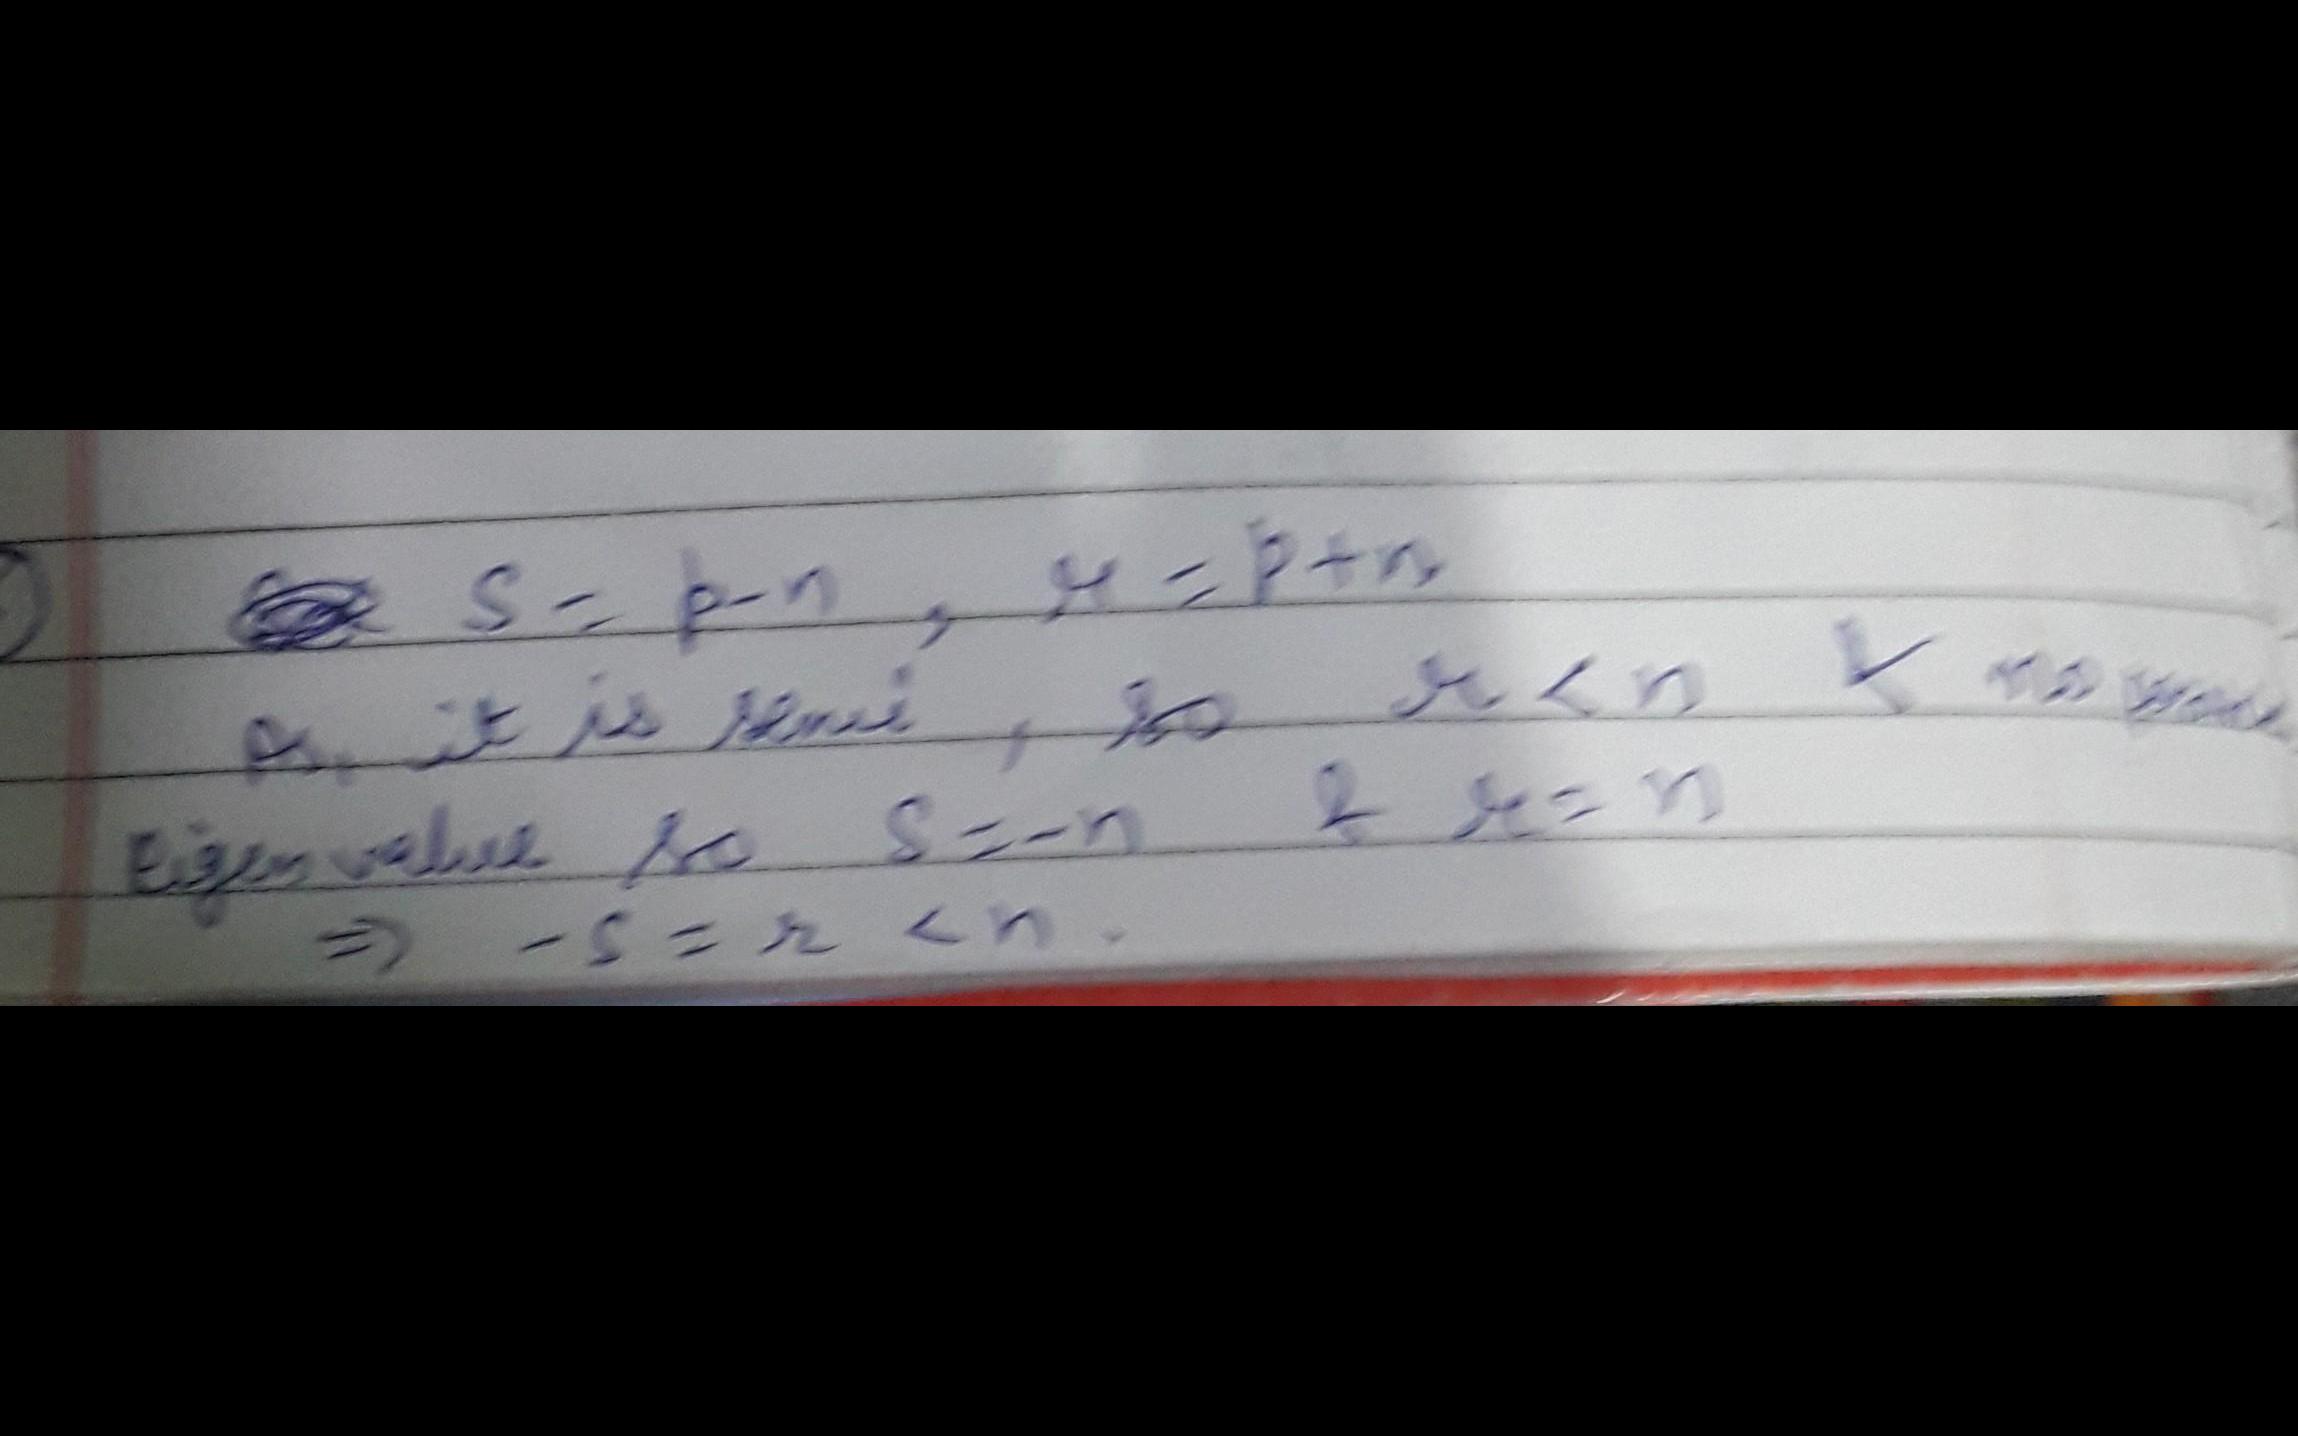 S = p-n , r = p+n
As, it is semi , so r < n & no
Eigen value so S = -n & r = n
=> -S = r < n.